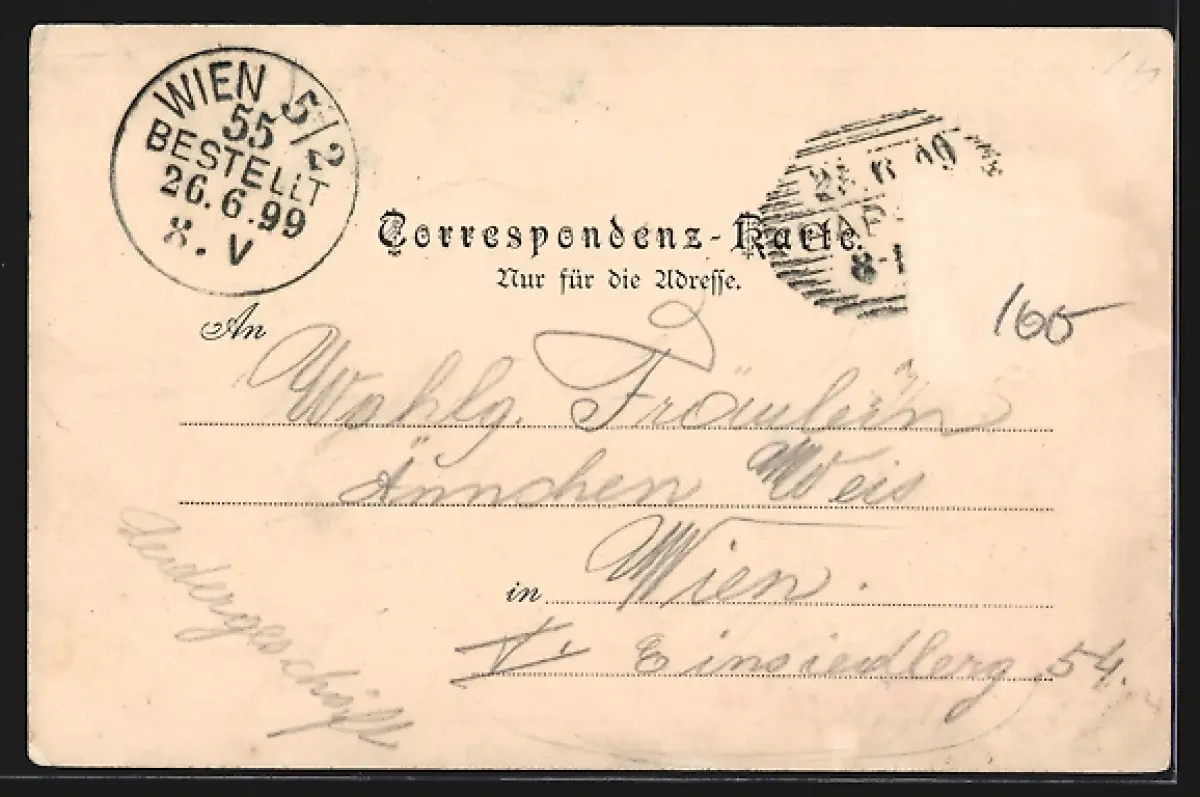 WIEN 5/2
55
BESTELLT
26.6.99
8. V
8-1
Correspondenz-Karte.
Nur für die Adresse.
165
An
Wohlg. Fräulein
Ännchen Weis
in Wien.
V. Einsiedlerg 54.